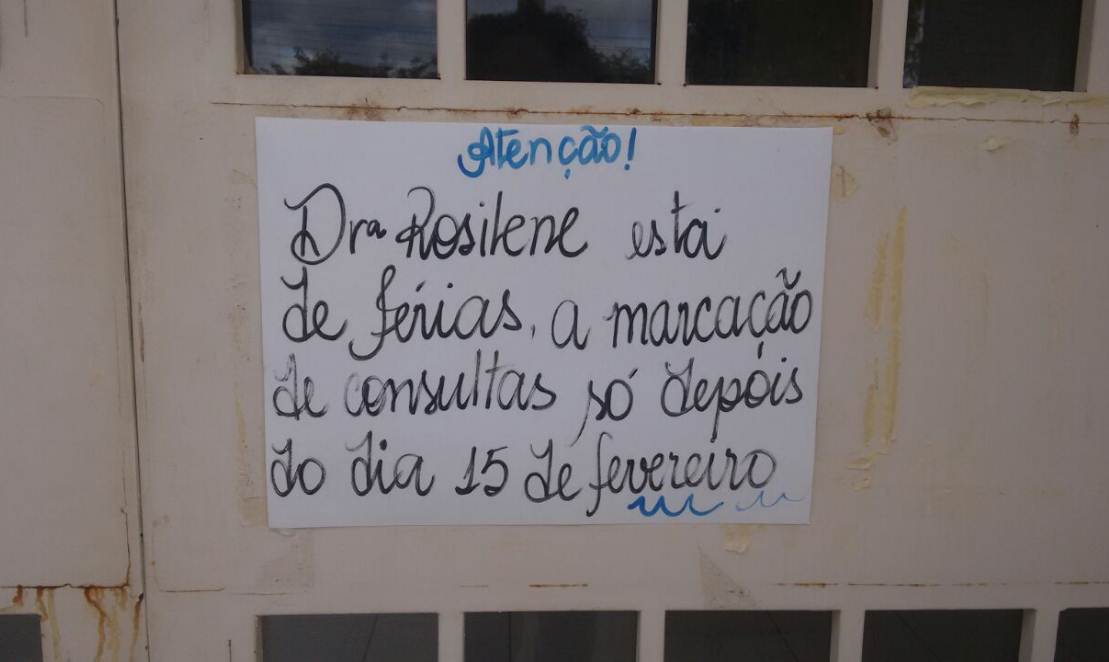 Atenção!
Drª Rosilene está
de férias, a marcação
de consultas só depóis
do dia 15 de fevereiro